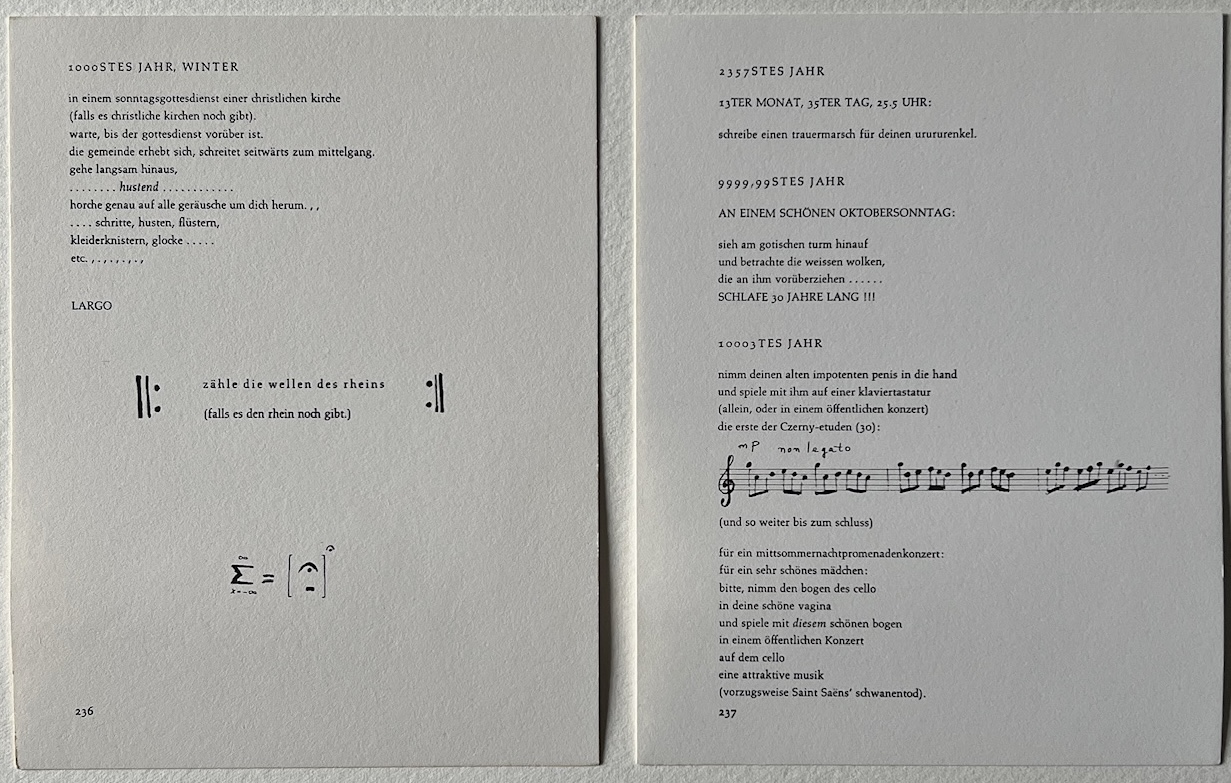 1000STES JAHR, WINTER
in einem sonntagsgottesdienst einer christlichen kirche
(falls es christliche kirchen noch gibt).
warte, bis der gottesdienst vorüber ist.
die gemeinde erhebt sich, schreitet seitwärts zum mittelgang.
gehe langsam hinaus,
. . . . . . . . hustend . . . . . . . . . . . .
horche genau auf alle geräusche um dich herum. , ,
. . . . schritte, husten, flüstern,
kleiderknistern, glocke . . . . .
etc. , . , . , . , . , ,
LARGO
zähle die wellen des rheins
(falls es den rhein noch gibt.)
∞
Σ = [ ]
x = -∞
236
2357STES JAHR
13TER MONAT, 35TER TAG, 25.5 UHR:
schreibe einen trauermarsch für deinen urururenkel.
9999,99STES JAHR
AN EINEM SCHÖNEN OKTOBERSONNTAG:
sieh am gotischen turm hinauf
und betrachte die weissen wolken,
die an ihm vorüberziehen . . . . . .
SCHLAFE 30 JAHRE LANG !!!
10003TES JAHR
nimm deinen alten impotenten penis in die hand
und spiele mit ihm auf einer klaviertastatur
(allein, oder in einem öffentlichen konzert)
die erste der Czerny-etuden (30):
mP non legato
(und so weiter bis zum schluss)
für ein mittsommernachtpromenadenkonzert:
für ein sehr schönes mädchen:
bitte, nimm den bogen des cello
in deine schöne vagina
und spiele mit diesem schönen bogen
in einem öffentlichen Konzert
auf dem cello
eine attraktive musik
(vorzugsweise Saint Saëns' schwanentod).
237